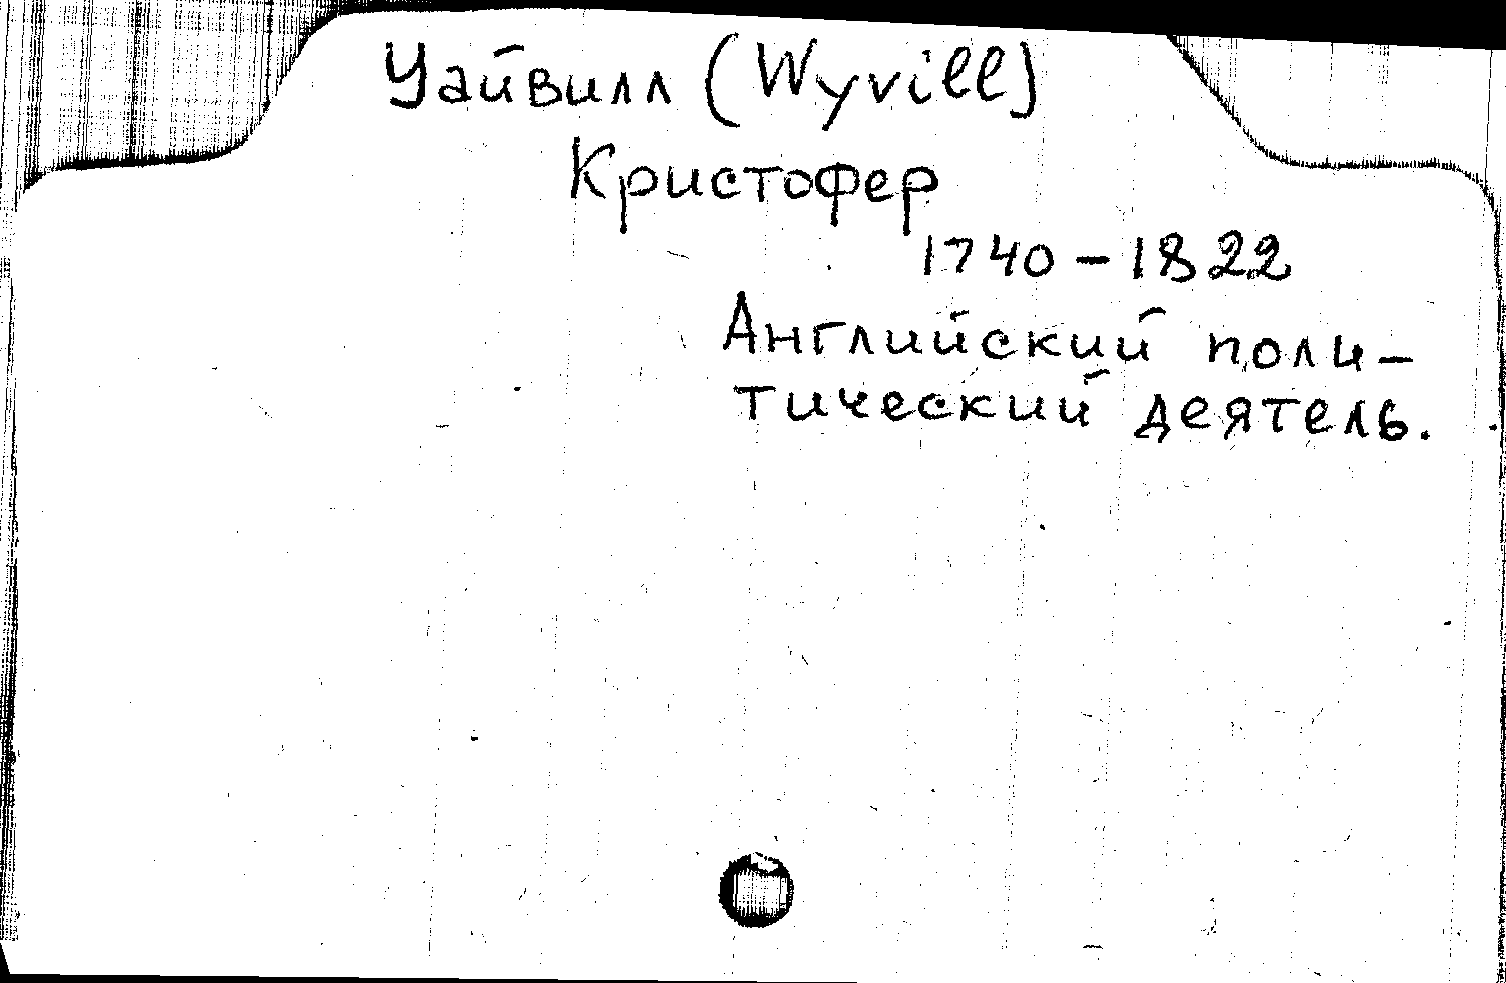 Уайвилл (Wyvill)
Кристофер
1740 – 1822
Английский поли-
тический деятель.